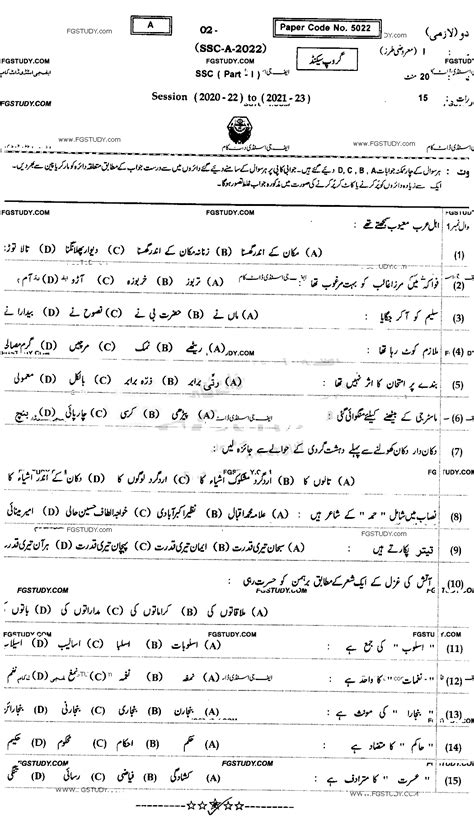 Paper Code No. 5022
A
02 -
دو (لازمی)
FGSTUDY.com
(SSC-A-2022)
گروپ سیکنڈ
I (معروضی طرز)
SSC (Part - I)
20 منٹ
Session (2020 - 22) to (2021 - 23)
15
www.FGSTUDY.com
ایف جی اسٹڈی ڈاٹ کام
ہر سوال کے چار ممکنہ جوابات D, C, B, A دیے گئے ہیں۔ جوابی کاپی پر ہر سوال کے سامنے دیے گئے دائروں میں سے درست جواب کے مطابق متعلقہ دائرہ کو مارکر یا پین سے بھر دیں۔
ایک سے زیادہ دائروں کو پُر کرنے یا کاٹ کر پُر کرنے کی صورت میں مذکورہ جواب غلط تصور ہوگا۔
سوال نمبر 1 اہلِ عرب معیوب سمجھتے تھے :
(1) (A) مکان کے اندر گھسنا (B) زنانہ مکان کے اندر گھسنا (C) دیوار پھلانگنا (D) تالا توڑنا
(2) فواکہ میں مرزا غالب کو بہت مرغوب تھا : (A) تربوز (B) خربوزہ (C) آڑو (D) آم
(3) سلیم کو آ کر جگایا : (A) ماں نے (B) حضرت بی نے (C) نصوح نے (D) بیدارا نے
(4) ملازم کوٹ رہا تھا : (A) ریٹھے (B) نمک (C) مرچیں (D) گرم مصالحہ
(5) بندے پر امتحان کا اثر نہیں تھا : (A) رتی برابر (B) ذرہ برابر (C) بالکل (D) معمولی
(6) ماسٹر جی کے بیٹھنے کیلئے منگوائی گئی : (A) پیڑھی (B) کرسی (C) چارپائی (D) بینچ
(7) دکان دار دکان کھولنے سے پہلے دہشت گردی کے حوالے سے جائزہ لیں :
(A) تالوں کا (B) اردگرد مشکوک اشیاء کا (C) اردگرد لوگوں کا (D) دکان کے اندر اشیاء کا
(8) نصاب میں شامل " حمد " کے شاعر ہیں : (A) علامہ محمد اقبال (B) نظیر اکبر آبادی (C) خواجہ الطاف حسین حالی (D) امیر مینائی
FGSTUDY.com
(9) تیتر پکارتے ہیں : (A) سبحان تیری قدرت (B) ایمان تیری قدرت (C) پہچان تیری قدرت (D) ہر آن تیری قدرت
(10) آتش کی غزل کے ایک شعر کے مطابق برہمن کو حسرت رہی :
FGSTUDY.COM
(A) ملاقاتوں کی (B) کراماتوں کی (C) مداراتوں کی (D) باتوں
FGSTUDY.COM
(11) " اسلوب " کی جمع ہے : (A) اسلوبات (B) اسلبا (C) اسالیب (D) اسیلاب
(12) " نغمات " کا واحد ہے : (A) نمغہ (B) نغمہ (C) نغم (D)
(13) " بنجارا " کی مونث ہے : (A) بنجارن (B) بنجاری (C) بنجارنی (D) بنجارائن
(14) " حاکم " کا متضاد ہے : (A) حکم (B) احکام (C) محکوم (D) حکیم
FGSTUDY.COM
(15) " عسرت " کا مترادف ہے : (A) کشادگی (B) فیاضی (C) رسائی (D) تنگی
www.FGSTUDY.com